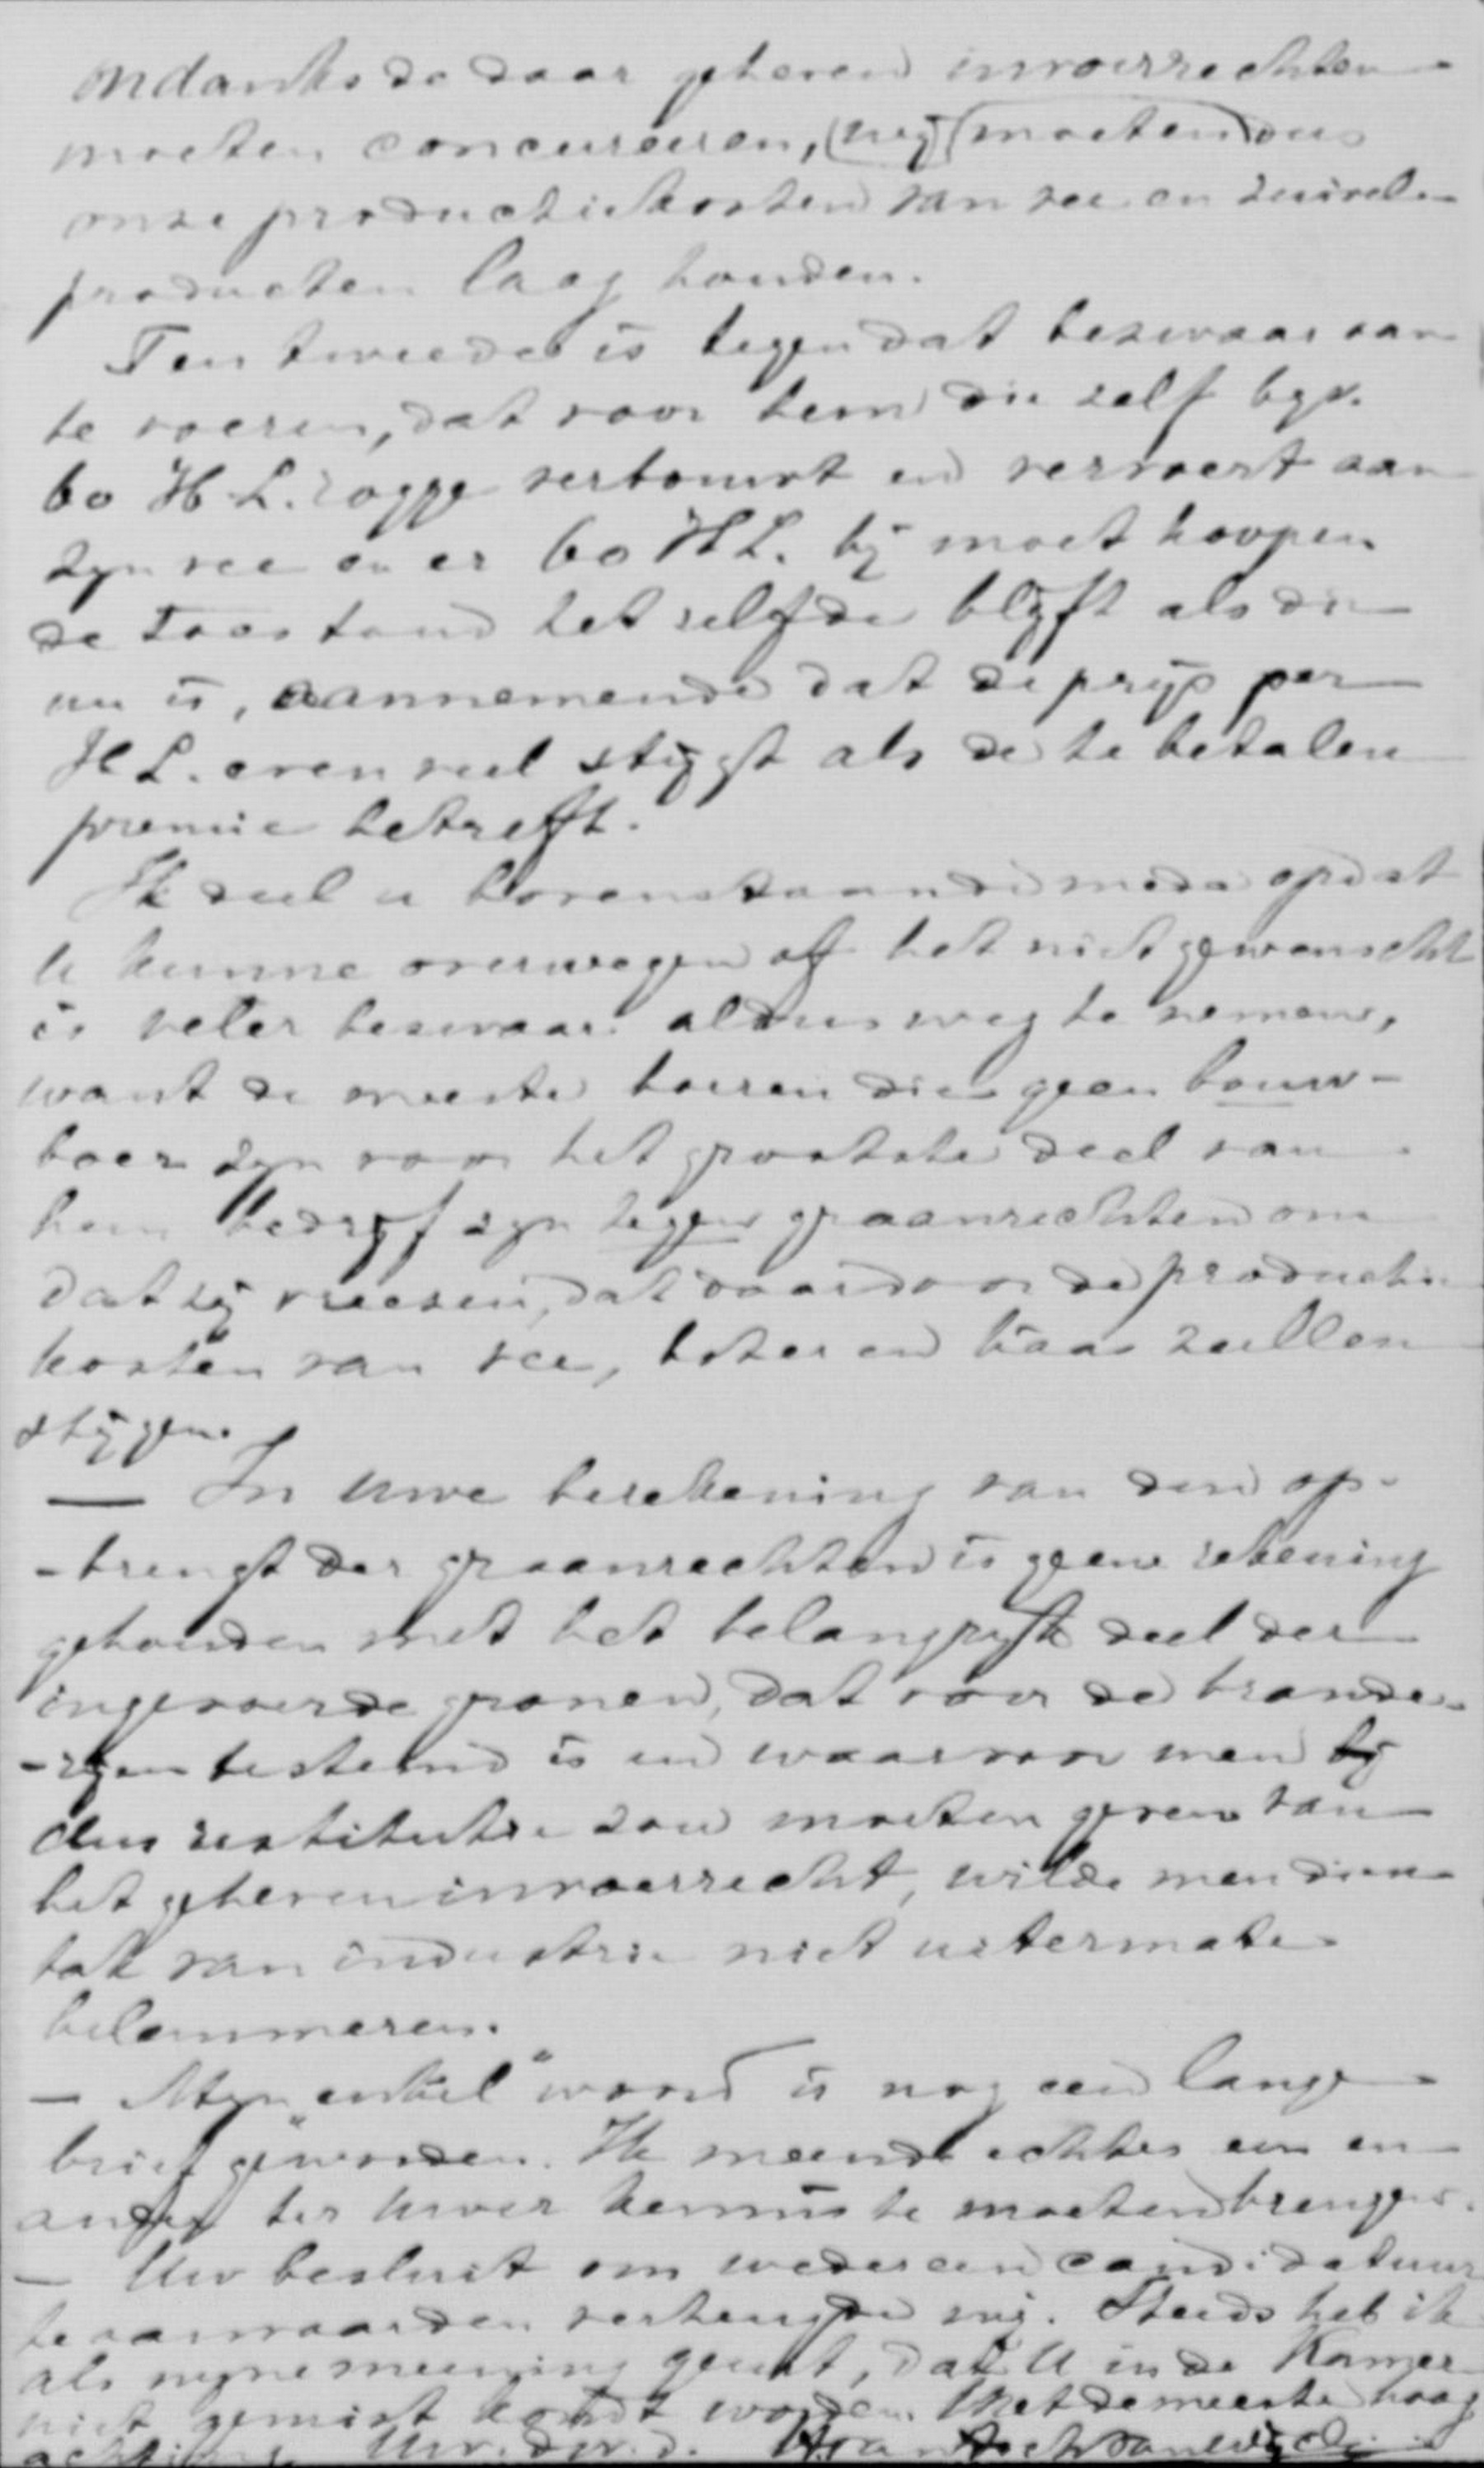 ondanks de daar geheven invoerrechten
moeten concureeren, (wij) (moeten) dus
onze productiekosten van vee en zuivel-
producten laag houden.
Ten tweede is tegen dat bezwaar aan
te voeren, dat voor hem die zelf bijv.
60 H.L. rogge verbouwt en vervoert aan
zijn vee en er 60 H.L. bij moet koopen
de toestand hetzelfde blijft als die
nu is, aannemende dat de prijs per
H.L. evenveel stijgt als de te betalen
premie betreft.
Ik deel u bovenstaande mede opdat
U kunne overwegen of het niet gewenscht
is veler bezwaar aldus weg te nemen,
want de meeste boeren die geen bouw-
boer zijn voor het grootste deel van
hun bedrijf zijn tegen graanrechten om
dat zij vreezen, dat daardoor de productie
kosten van vee, boter en kaas zullen
stijgen.
— In uwe berekening van den op-
-brengst der graanrechten is geene rekening
gehouden met het belangrijk deel der
ingevoerde granen, dat voor de brande-
-rijen bestemd is en waarvoor men bij
dus restitutie zou moeten geven van
het geheven invoerrecht, wilde men dien
tak van industrie niet uitermate
belemmeren.
— Mijn "enkel" woord is nog een lange
brief geworden. Ik meende echter een en
ander ter Uwer kennis te moeten brengen.
— Uw besluit om weder een candidatuur
te aanvaarden verheugde mij. Steeds heb ik
als mijne meening geuit, dat U in de Kamer
niet gemist kondt worden. Met de meeste hoog
achting Uw. dw. d.